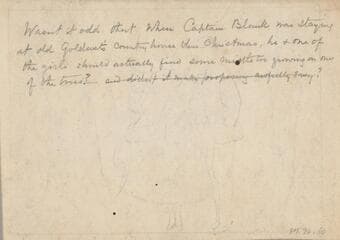 Wasnt it odd that when Captain Blank was staying
at old Goldnuts country house this Christmas, he & one of
the girls should actually find some mistletoe growing on one
of the trees? and didn't it make proposing awfully easy?